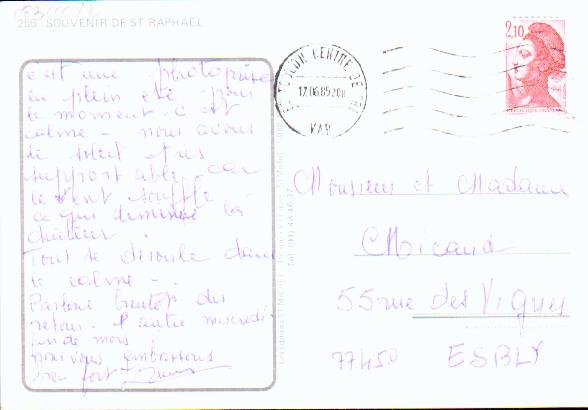 255 SOUVENIR DE ST RAPHAEL
c'est une photo prise
en plein été pour
le moment c'est
calme - nous avons
le soleil très
supportable car
le vent souffle
ce qui diminue la
chaleur.
Tout se déroule dans
le calme -.
Parlons bientôt du
retour.
fin de mois
nous vous embrassons
bien fort
2,10
TOULON CENTRE DE TRI
17 06 85 20H
VAR
Monsieur et Madame
Micaud
55 rue des Vignes
77450 ESBLY